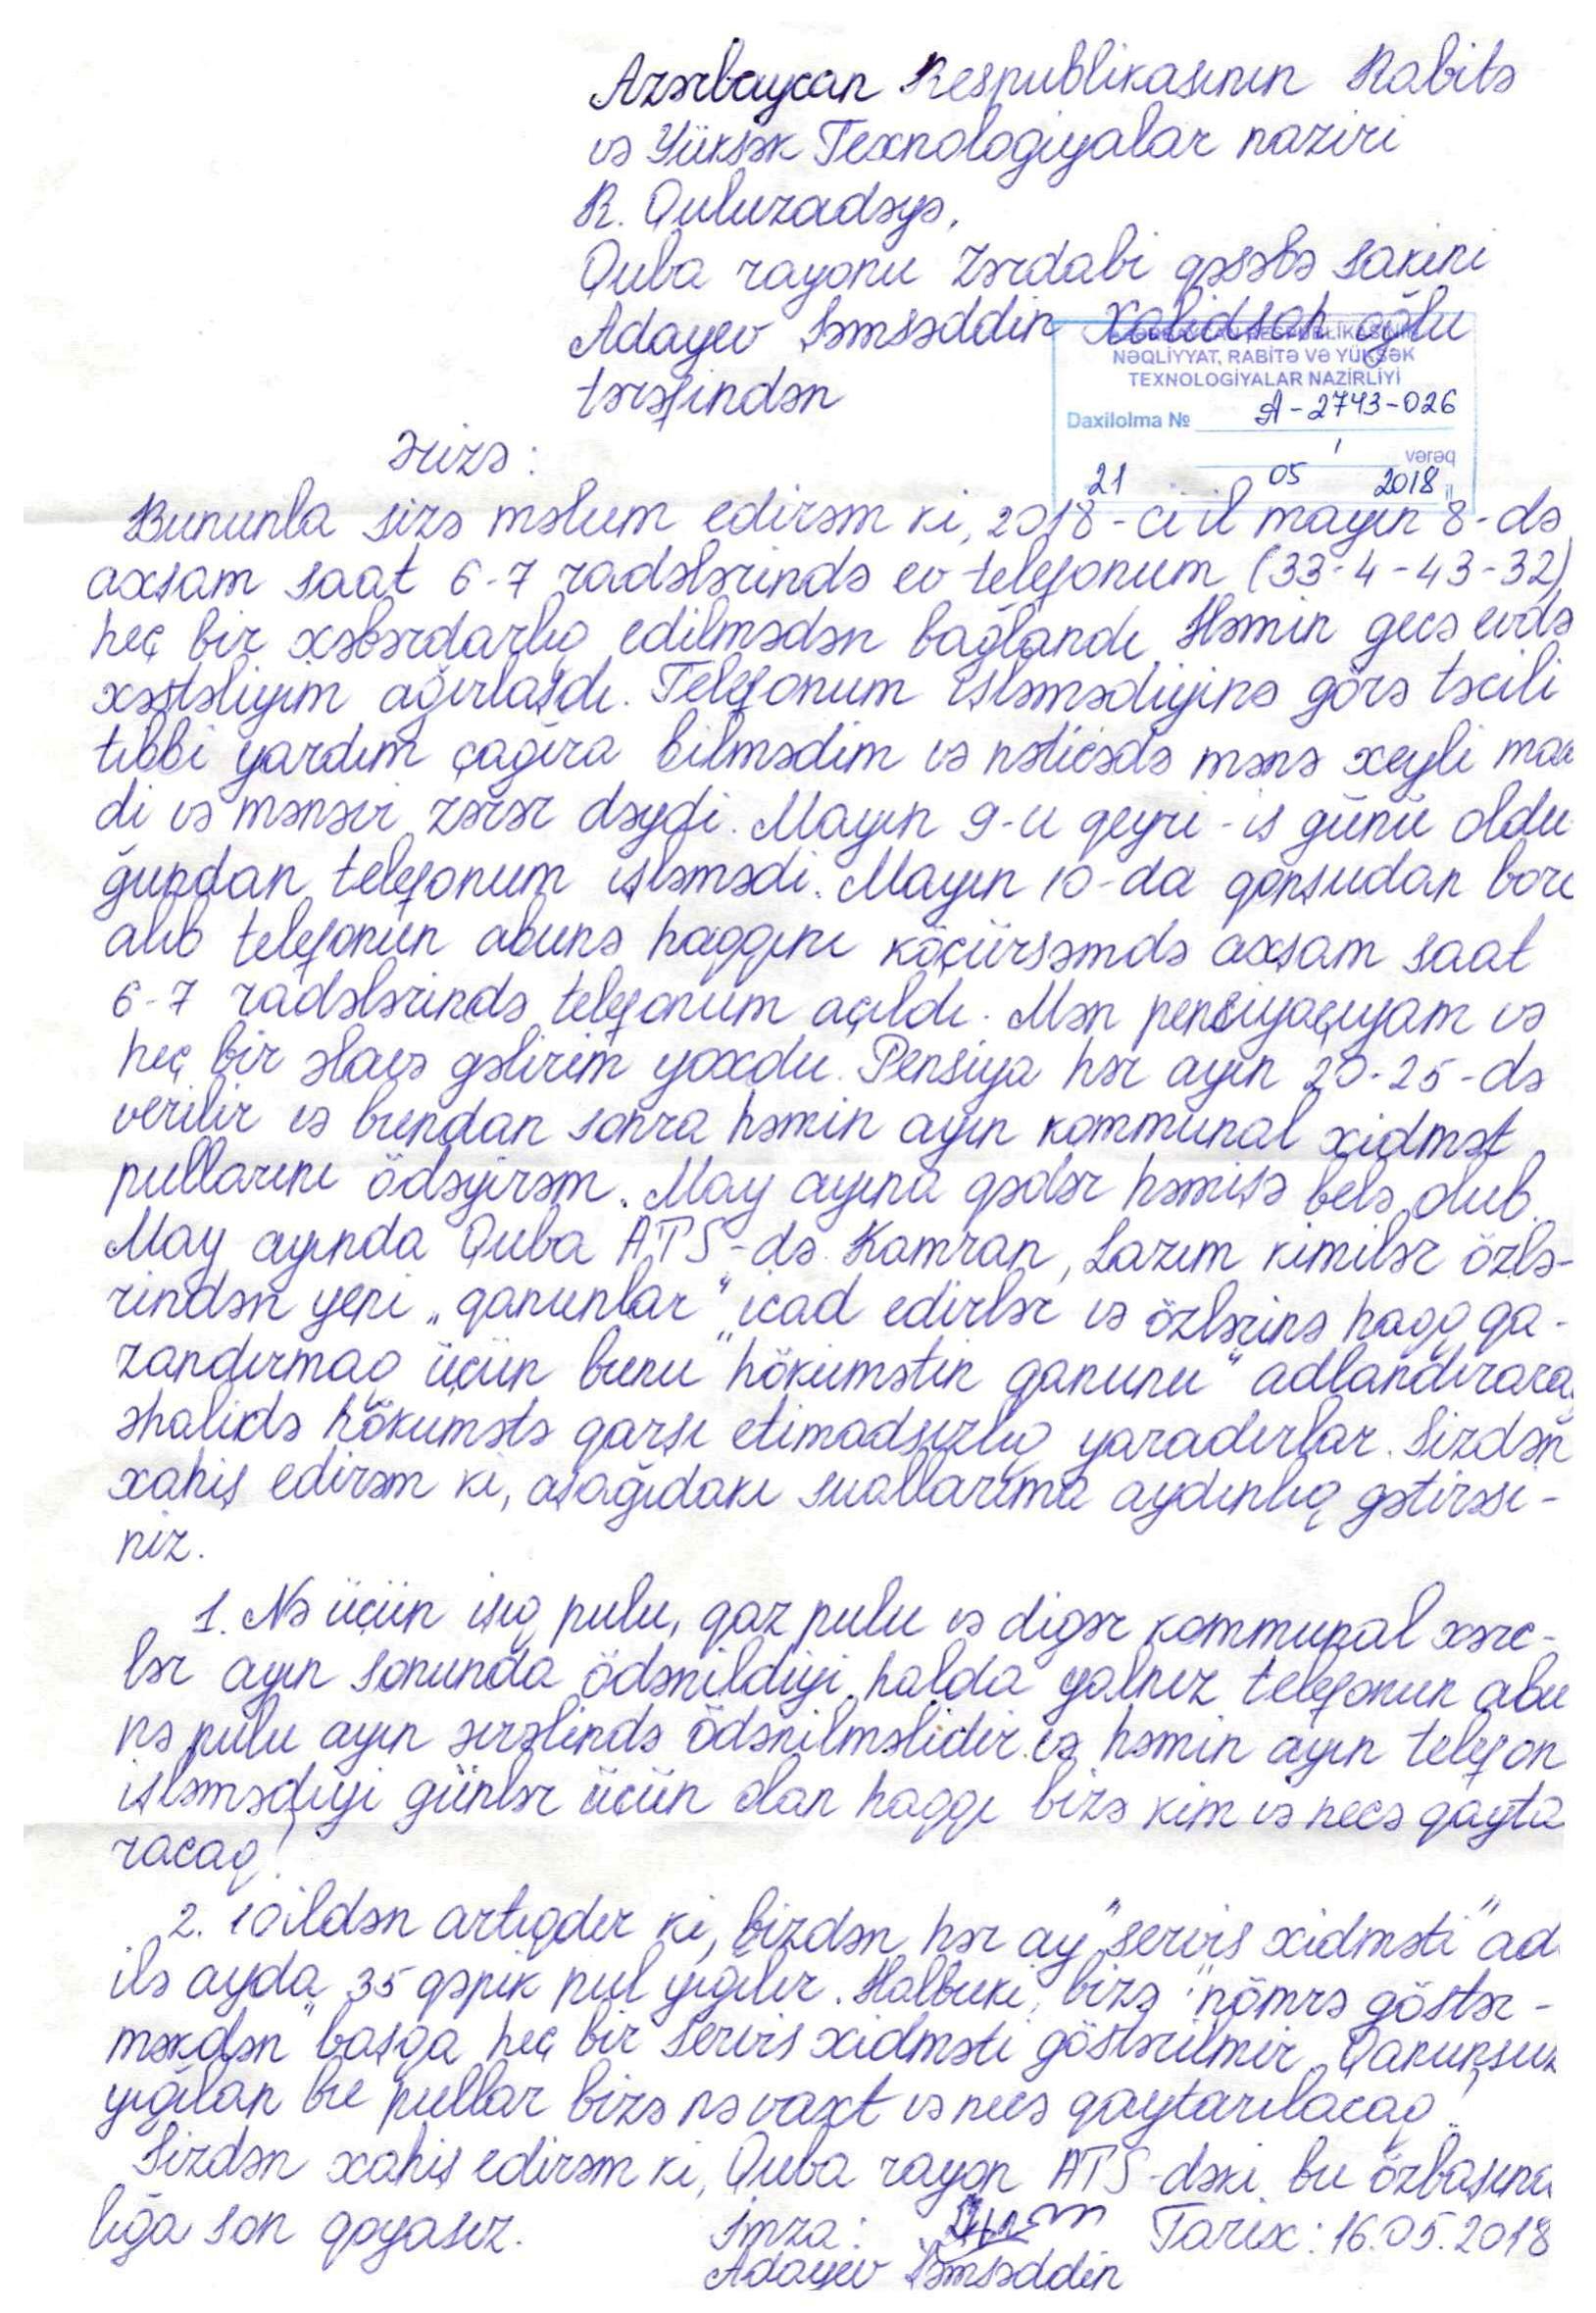 Azərbaycan Respublikasının Rabitə
və Yüksək Texnologiyalar naziri
R. Quluzadəyə,
Quba rayonu Zərdabi qəsəbə sakini
Adayev Şəmsəddin Xalidşah oğlu
tərəfindən
AZƏRBAYCAN RESPUBLİKASININ
NƏQLİYYAT, RABİTƏ VƏ YÜKSƏK
TEXNOLOGİYALAR NAZİRLİYİ
Daxilolma № A-2743-026
1 vərəq
21 05 2018
Ərizə:
Bununla sizə məlum edirəm ki, 2018-ci il mayın 8-də
axşam saat 6-7 radələrində ev telefonum (33-4-43-32)
heç bir xəbərdarlıq edilmədən bağlandı. Həmin gecə evdə
xəstəliyim ağırlaşdı. Telefonum işləmədiyinə görə təcili
tibbi yardım çağıra bilmədim və nəticədə mənə xeyli maa
di və mənəvi zərər dəydi. Mayın 9-u qeyri-iş günü oldu
ğundan telefonum işləmədi. Mayın 10-da qonşudan borc
alıb telefonun abunə haqqını köçürsəmdə axşam saat
6-7 radələrində telefonum açıldı. Mən pensiyaçıyam və
heç bir əlavə gəlirim yoxdu. Pensiya hər ayın 20-25-də
verilir və bundan sonra həmin ayın kommunal xidmət
pullarını ödəyirəm. May ayına qədər həmişə belə olub.
May ayında Quba ATS-də Kamran, Lazım kimilər özlə-
rindən yeni „qanunlar" icad edirlər və özlərinə haqq qa-
zandırmaq üçün bunu "hökümətin qanunu" adlandırara
əhalidə hökumətə qarşı etimadsızlıq yaradırlar. Sizdən
xahiş edirəm ki, aşağıdakı suallarıma aydınlıq gətirəsi-
niz.
1. Nə üçün işıq pulu, qaz pulu və digər kommunal xərc-
lər ayın sonunda ödənildiyi halda yalnız telefonun abu
nə pulu ayın əvvəlində ödənilməlidir və həmin ayın telefon
işləmədiyi günlər üçün olan haqqı bizə kim və necə qayta
racaq!
2. 10 ildən artıqdır ki, bizdən hər ay "servis xidməti" ad
ilə ayda 35 qəpik pul yığılır. Halbuki, bizə "nömrə göstər-
məkdən" başqa heç bir servis xidməti göstərilmir. Qanunsuz
yığılan bu pullar bizə nə vaxt və necə qaytarılacaq!
Sizdən xahiş edirəm ki, Quba rayon ATS-dəki bu özbaşına
lığa son qoyasız. İmza: Tarix: 16.05.2018
Adayev Şəmsəddin